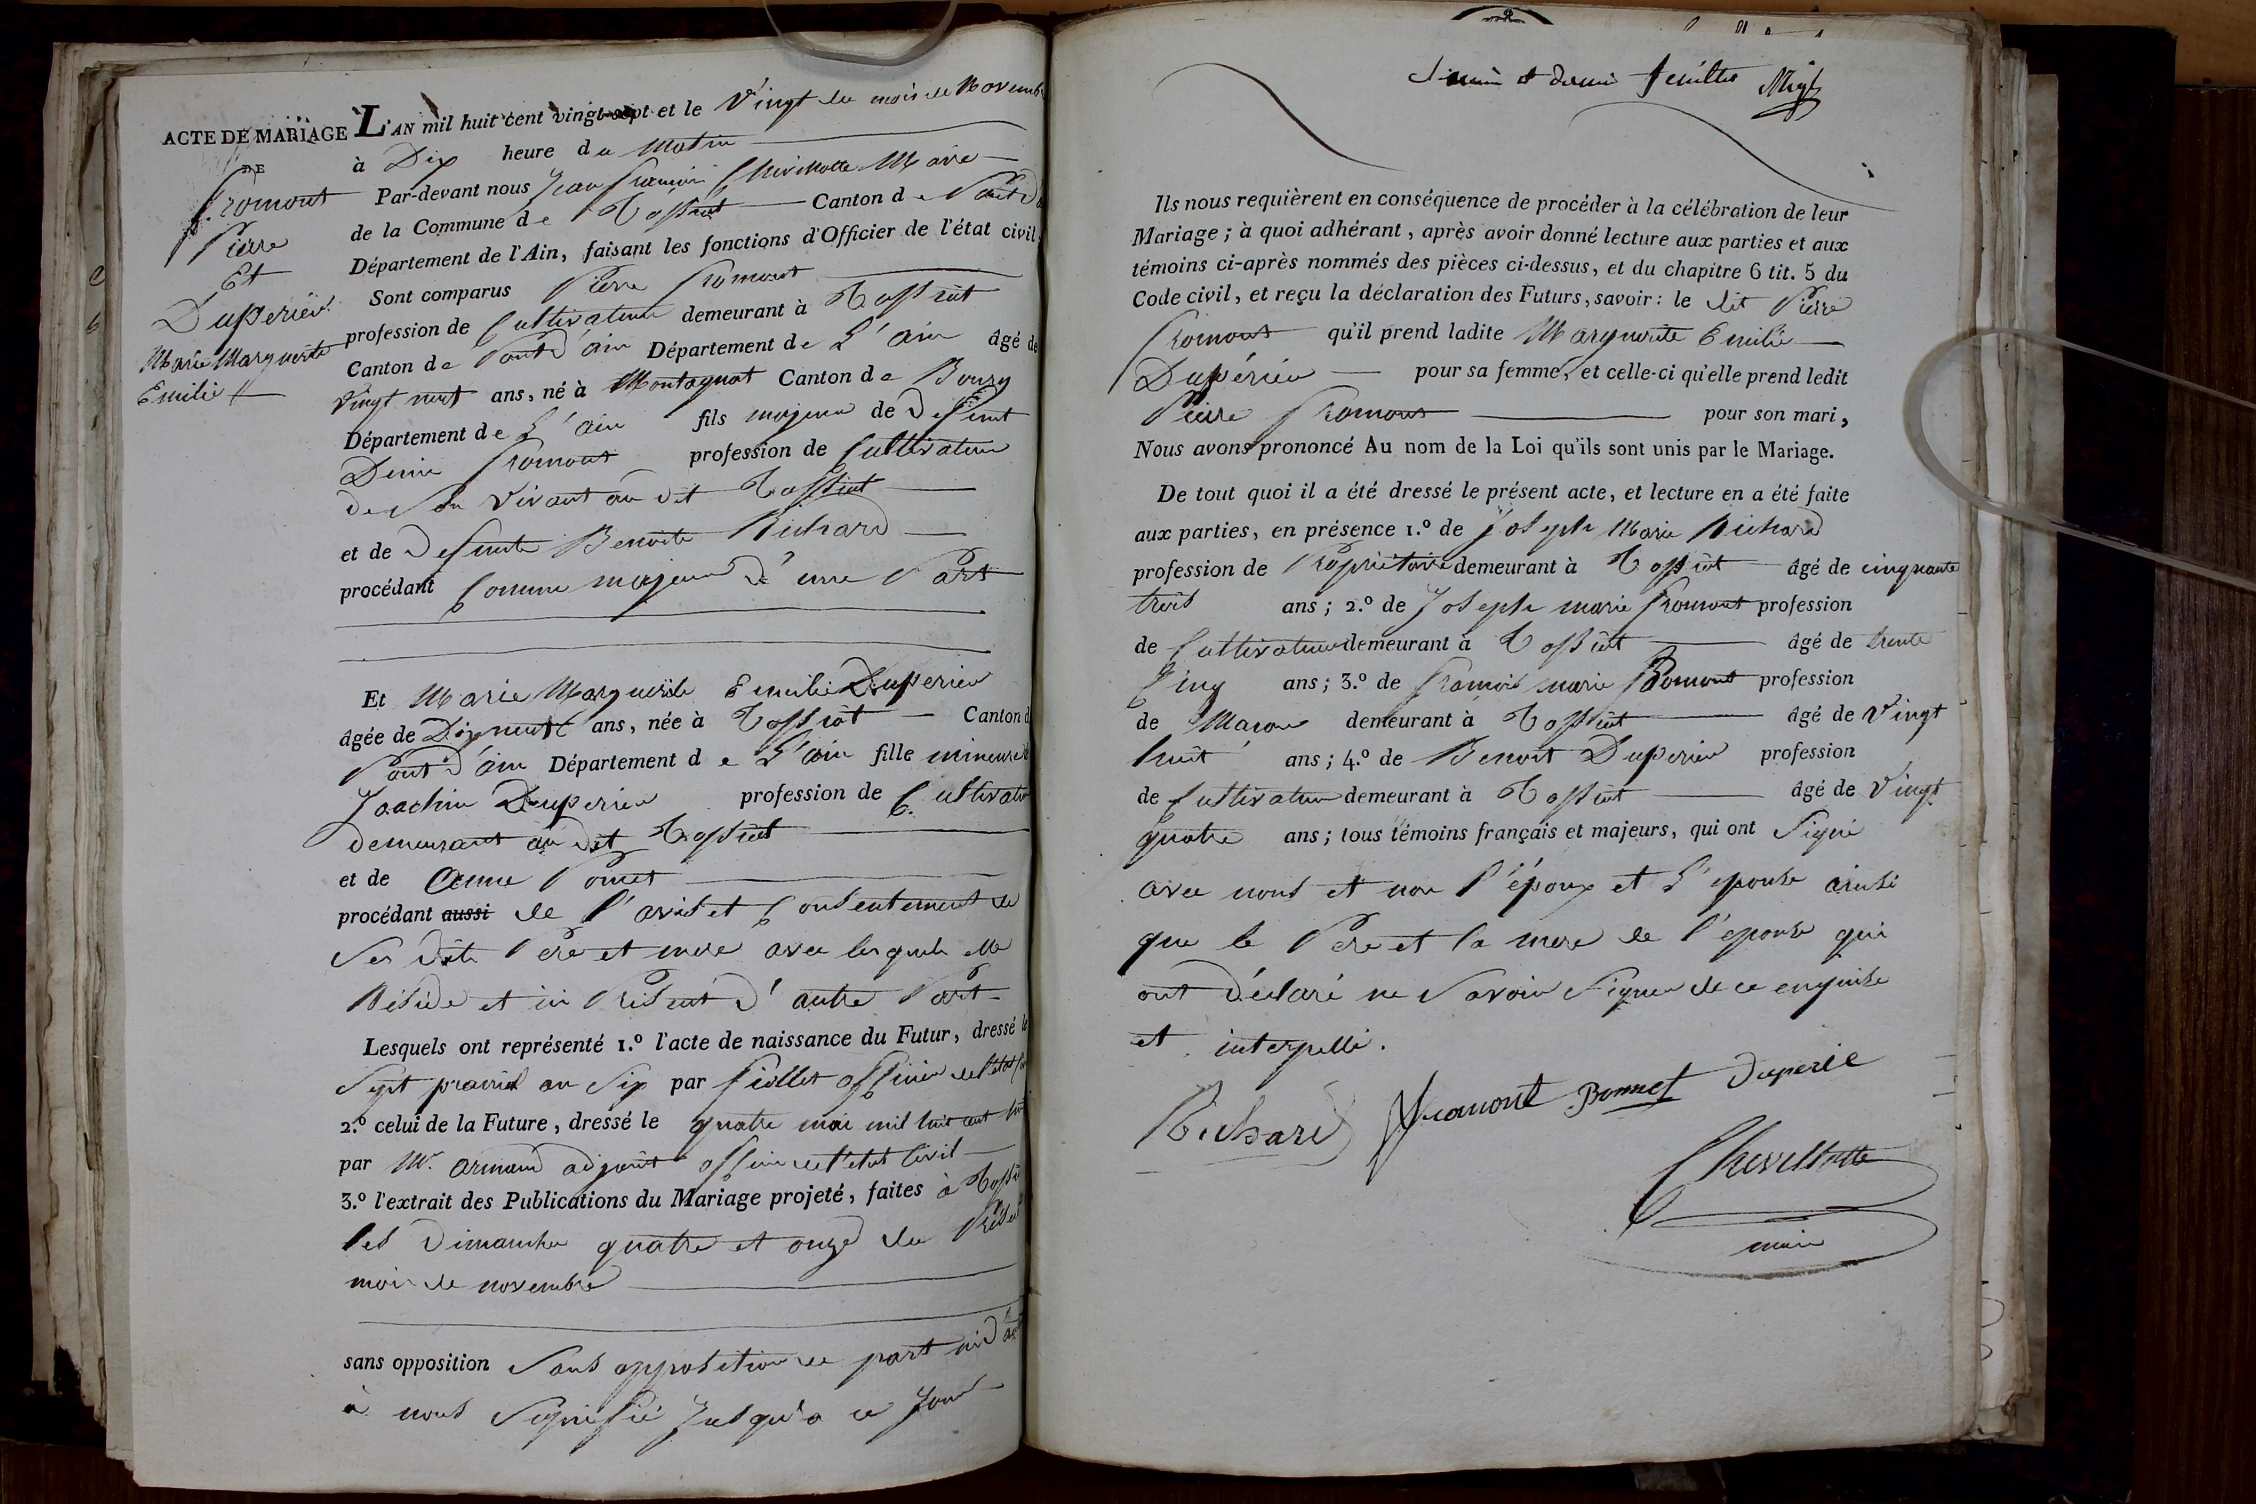 ACTE DE MARIAGE
DE
Fromont
Pierre
Et
Duperier
Marie Marguerite
Emilie
L'AN mil huit cent vingt-sept et le Vingt du mois de Novemb
à Dix heure du Matin
Par-devant nous Jean François Chevillotte Maire
de la Commune de Tossiat Canton de Pont d
Département de l'Ain, faisant les fonctions d'Officier de l'état civil.
Sont comparus Pierre Fromont
profession de Cultivateur demeurant à Tossiat
Canton de Pont d'ain Département de L'ain âgé de
Vingt neuf ans, né à Montagnat Canton de Bourg
Département de L'ain fils majeur de Deffunt
Denis Fromont profession de Cultivateur
de son Vivant au dit Tossiat
et de Deffunte Benoite Richard
procédant Comme majeur d'une Part
Et Marie Marguerite Emilie Duperier
âgée de Dixneuf ans, née à Tossiat Canton d
Pont d'ain Département de L'ain fille mineure de
Joachim Duperier profession de Cultivateur
demeurant au dit Tossiat
et de Anne Poncet
procédant aussi de l'avis et Consentement de
Ses dits Père et mère avec lesquels elle
Réside et ici Présent d'autre Part
Lesquels ont représenté 1.º l'acte de naissance du Futur, dressé le
Sept prairial an Six par officier de l'état
2.º celui de la Future, dressé le quatre mai mil huit cent huit
par Mr. Armand adjoint officier de l'état Civil
3.º l'extrait des Publications du Mariage projeté, faites à Tossia
les Dimanches quatre et onze du Présent
mois de novembre
sans opposition Sans opposition de part ni d'au
à nous Signifié Jusqu'à ce Jour
et dernier feuillet
Ils nous requièrent en conséquence de procéder à la célébration de leur
Mariage ; à quoi adhérant, après avoir donné lecture aux parties et aux
témoins ci-après nommés des pièces ci-dessus, et du chapitre 6 tit. 5 du
Code civil, et reçu la déclaration des Futurs, savoir : le dit Pierre
Fromont qu'il prend ladite Marguerite Emilie
Dupérier pour sa femme, et celle-ci qu'elle prend ledit
Pierre Fromont pour son mari,
Nous avons prononcé Au nom de la Loi qu'ils sont unis par le Mariage.
De tout quoi il a été dressé le présent acte, et lecture en a été faite
aux parties, en présence 1.º de Joseph Marie Richard
profession de Propriétaire demeurant à Tossiat âgé de cinquante
trois ans ; 2.º de Joseph marie Fromont profession
de Cultivateur demeurant à Tossiat âgé de trente
Cinq ans ; 3.º de François marie Bomont profession
de Macon demeurant à Tossiat âgé de Vingt
huit ans ; 4.º de Benoit Duperier profession
de Cultivateur demeurant à Tossiat âgé de Vingt
quatre ans ; tous témoins français et majeurs, qui ont Signé
avec nous et non l'époux et L'epouse ainsi
que le Père et la mere de l'epouse qui
ont déclaré ne Savoir Signer de ce enquise
et interpellé.
Richard Fromont Bonnet Duperie
Chevillotte
maire